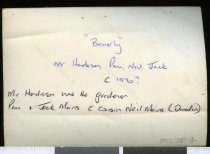 "Beverly"
Mr Henderson Pam, Neil, Jack
C 1970?
Mr. Henderson was the gardener
Pam + Jack Mavis C Cousin Neil Mavis (Donator)